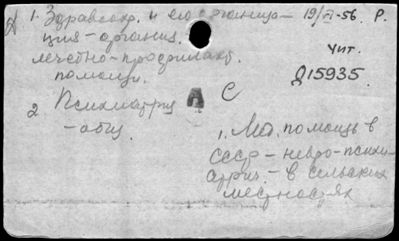 1. Здравоохр. и его организа- 19/VI-56. Р.
ция - организ.
лечебно-профилакт.
помощи.
Чит.
Д15935.
2. Психиатрия
- общ.
С
1. Мед. помощь в
СССР - невро-психи-
атрия - в сельских
местностях